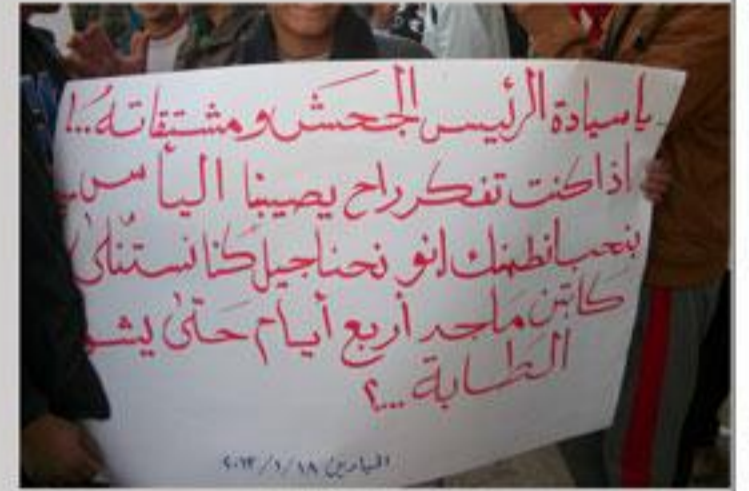 يا سيادة الرئيس الجحش ومشتقاته..!
اذا كنت تفكر راح يصيبنا اليأس
بنحب نطمنك انو نحنا جيل كنا نستنى
كابتن ماجد أربع أيام حتى يشو
الطابة...؟
الميادين ١٨/١/٢٠١٣